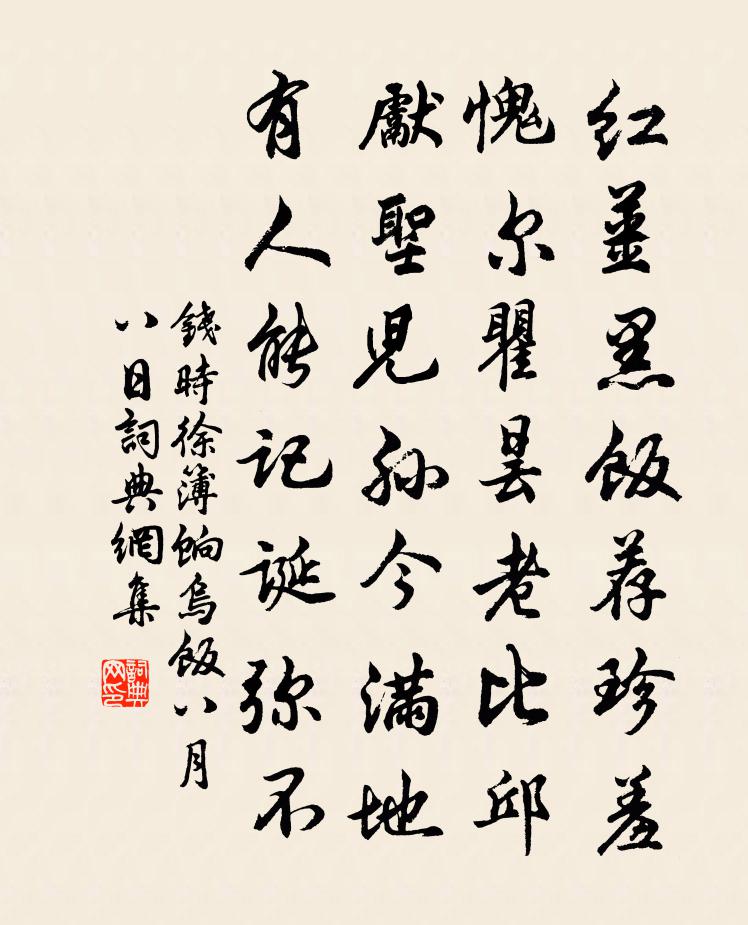 红薑黑飯荐珍羞
愧尔瞿昙老比邱
獻聖児孙今满地
有人能记诞弥不
錢時徐簿餉烏飯八月
八日詞典網集
詞典网印